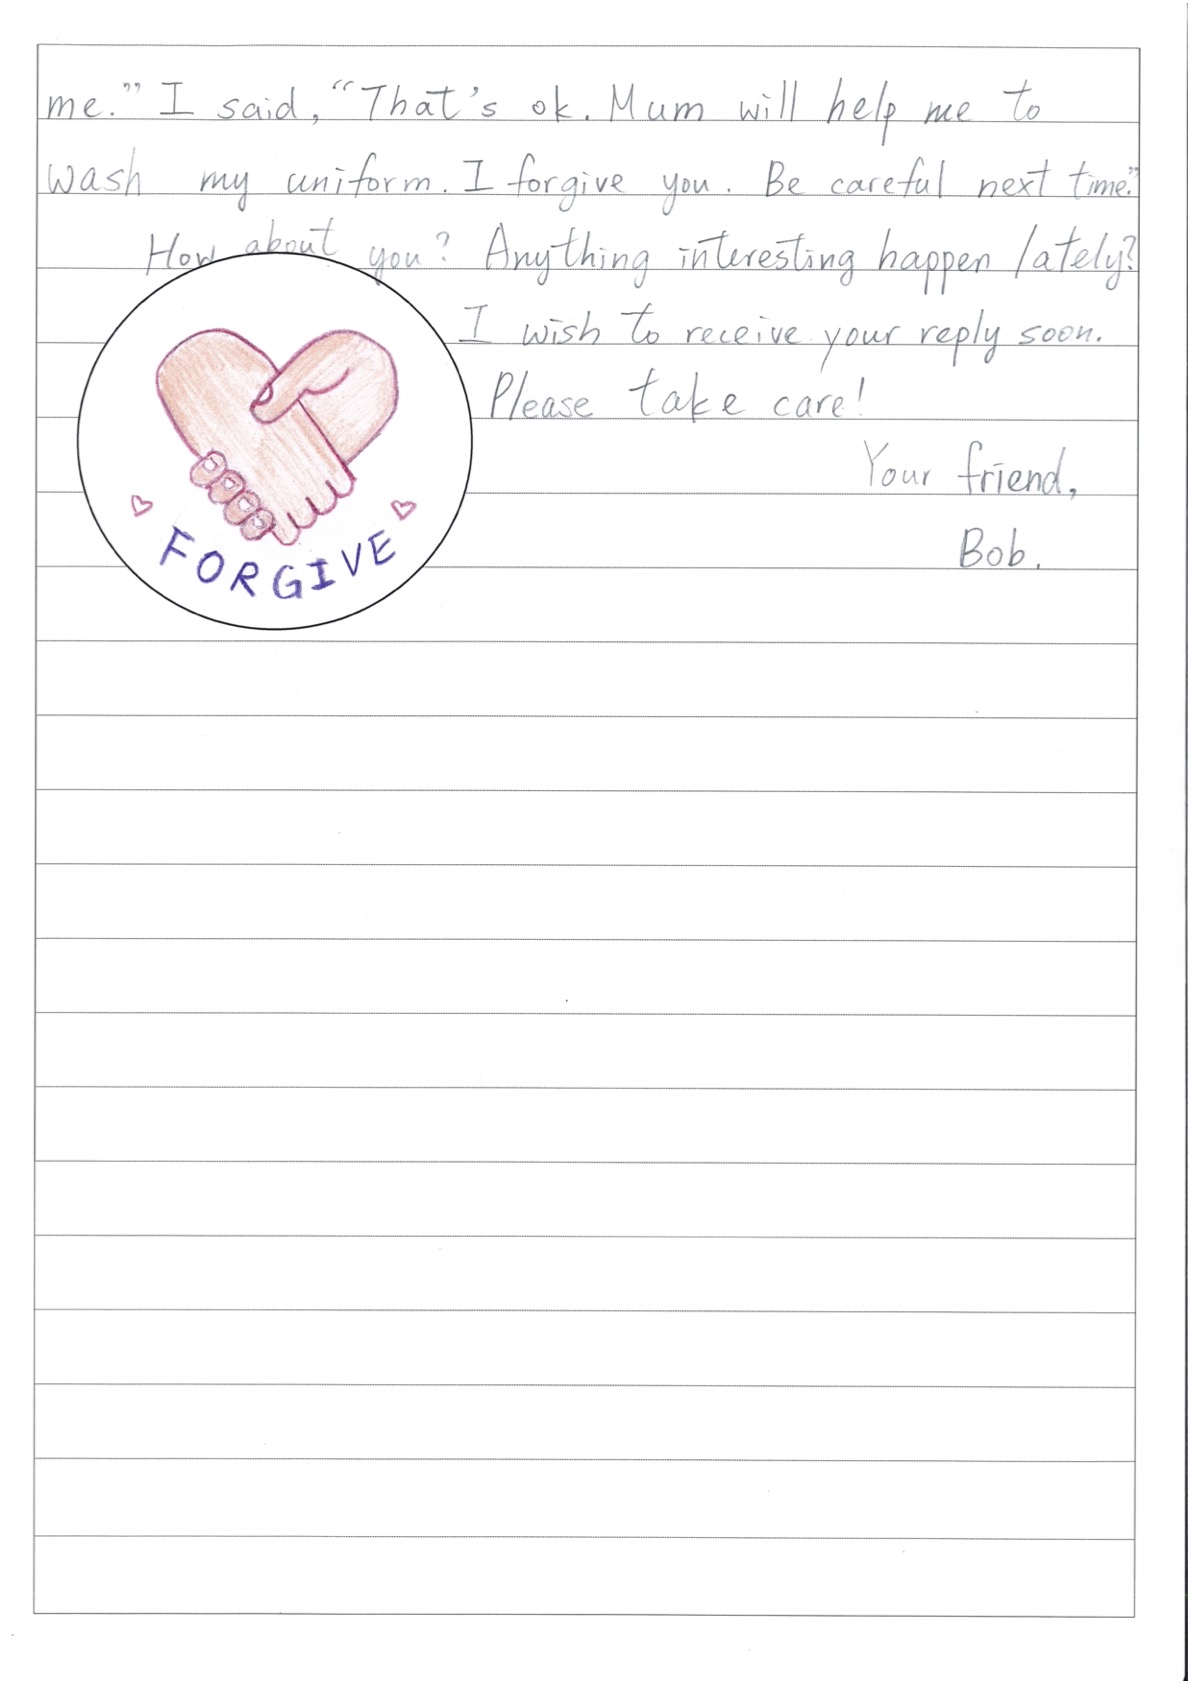 me." I said, "That's ok. Mum will help me to
wash my uniform. I forgive you. Be careful next time."
How about you? Anything interesting happen lately?
I wish to receive your reply soon.
Please take care!
Your friend,
Bob.
FORGIVE